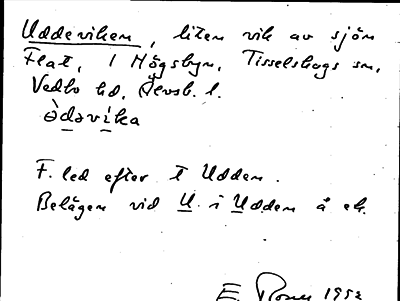 Uddeviken, liten vik av sjön
Flat, i Högsbyn, Tisselskogs sn,
Vedbo hd, Älvsb. l.
ə̀dəvíka
F. led efter t Udden.
Belägen vid U. i Udden å ek.
E. Rosell 1952